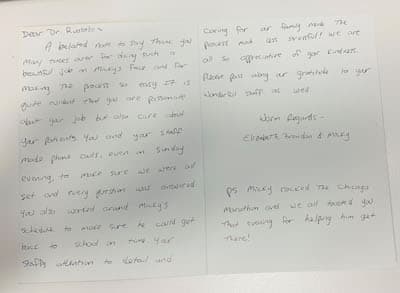 Dear Dr. Russolo ~
A belated note to say Thank you
Many times over for doing such a
beautiful job on Micky's face and for
Making The process so easy. It is
quite evident that you are passionate
about your job but also care about
your patients. You and your staff
made phone calls, even on Sunday
evening, to make sure we were all
set and every question was answered
You also worked around Micky's
schedule to make sure he could get
back to school on time. Your
Staff's attention to detail and
Caring for our family made The
process much less stressful! We are
all so appreciative of your kindness.
Please pass along our gratitude to your
wonderful staff as well.
Warm Regards ~
Elizabeth, Brendan & Micky
PS Micky rocked The Chicago
Marathon and we all toasted you
That evening for helping him get
There!